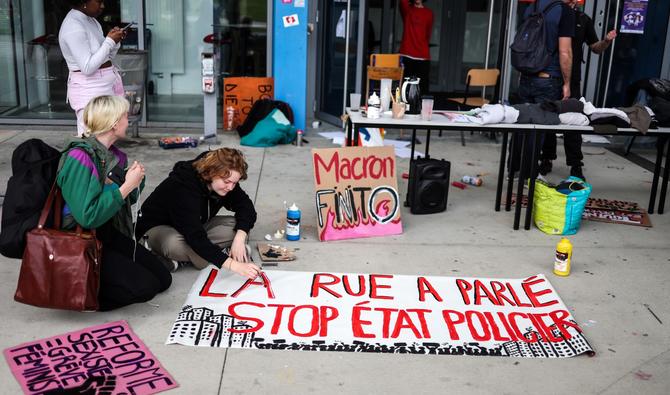 Macron
FINITO
LA RUE A PARLÉ
STOP ÉTAT POLICIER
RÉFORME
SEXISTE
GRÈVE
FÉMINIS